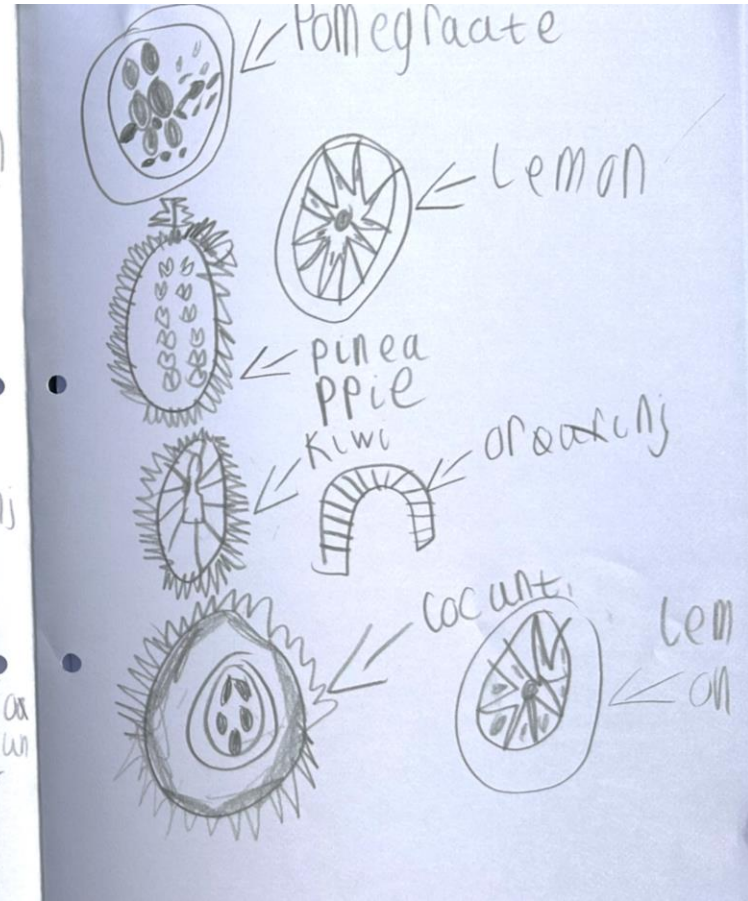 Pomegraate
Lemon
pinea
ppie
Kiwi
Cocunt
Lem
on